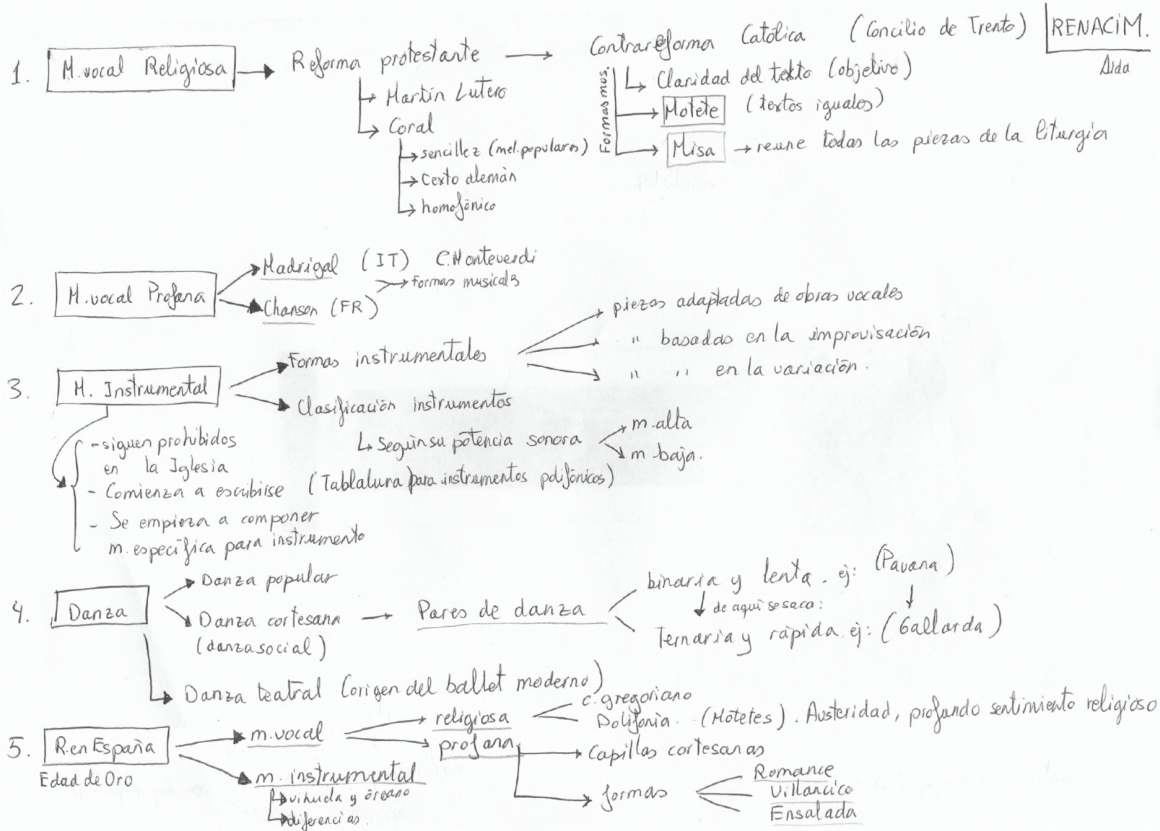 1. M.vocal Religiosa → Reforma protestante → Contrareforma Católica (Concilio de Trento) RENACIM.
Aida
↳ Martín Lutero
↳ Coral
↳ sencillez (mel.populares)
→ texto alemán
↳ homofónico
Formas mus.
↳ Claridad del texto (objetivo)
→ Motete (textos iguales)
→ Misa → reune todas las piezas de la liturgia
2. M.vocal Profana
Madrigal (IT) C.Monteverdi
→ formas musicals
Chanson (FR)
3. M. Instrumental
Formas instrumentales
piezas adaptadas de obras vocales
" basadas en la improvisación
" " en la variación.
Clasificación instrumentos
↳ según su potencia sonora
m.alta
m baja.
- siguen prohibidos
en la Iglesia
- Comienza a escribirse (Tablatura para instrumentos polifónicos)
- Se empieza a componer
m. específica para instrumento
4. Danza
Danza popular
Danza cortesana → Pares de danza
(danza social)
binaria y lenta. ej: (Pavana)
↓ de aquí se saca: ↓
Ternaria y rápida. ej: (Gallarda)
Danza teatral (origen del ballet moderno)
5. R.en España
Edad de Oro
m.vocal
religiosa
c.gregoriano
Polifonía. (Motetes). Austeridad, profundo sentimiento religioso
profana
→ Capillas cortesanas
→ formas
Romance
Villancico
Ensalada
m. instrumental
↳ vihuela y órgano
↳ diferencias.